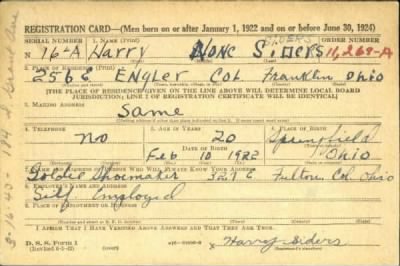 REGISTRATION CARD—(Men born on or after January 1, 1922 and on or before June 30, 1924)
SERIAL NUMBER 1. NAME (Print) SIDERS ORDER NUMBER
16-A Harry None Siders 11,269-A
2. PLACE OF RESIDENCE (Print)
256 E Engler Col. Franklin Ohio
[THE PLACE OF RESIDENCE GIVEN ON THE LINE ABOVE WILL DETERMINE LOCAL BOARD
JURISDICTION; LINE 2 OF REGISTRATION CERTIFICATE WILL BE IDENTICAL]
3. MAILING ADDRESS
Same
4. TELEPHONE 5. AGE IN YEARS 6. PLACE OF BIRTH
No 20 Springfield
DATE OF BIRTH
Feb 10 1922 Ohio
7. NAME AND ADDRESS OF PERSON WHO WILL ALWAYS KNOW YOUR ADDRESS
Shoemaker Fulton Col. Ohio
8. EMPLOYER'S NAME AND ADDRESS
Self Employed
9. PLACE OF EMPLOYMENT OR BUSINESS
I AFFIRM THAT I HAVE VERIFIED ABOVE ANSWERS AND THAT THEY ARE TRUE.
D. S. S. Form 1
Harry Siders